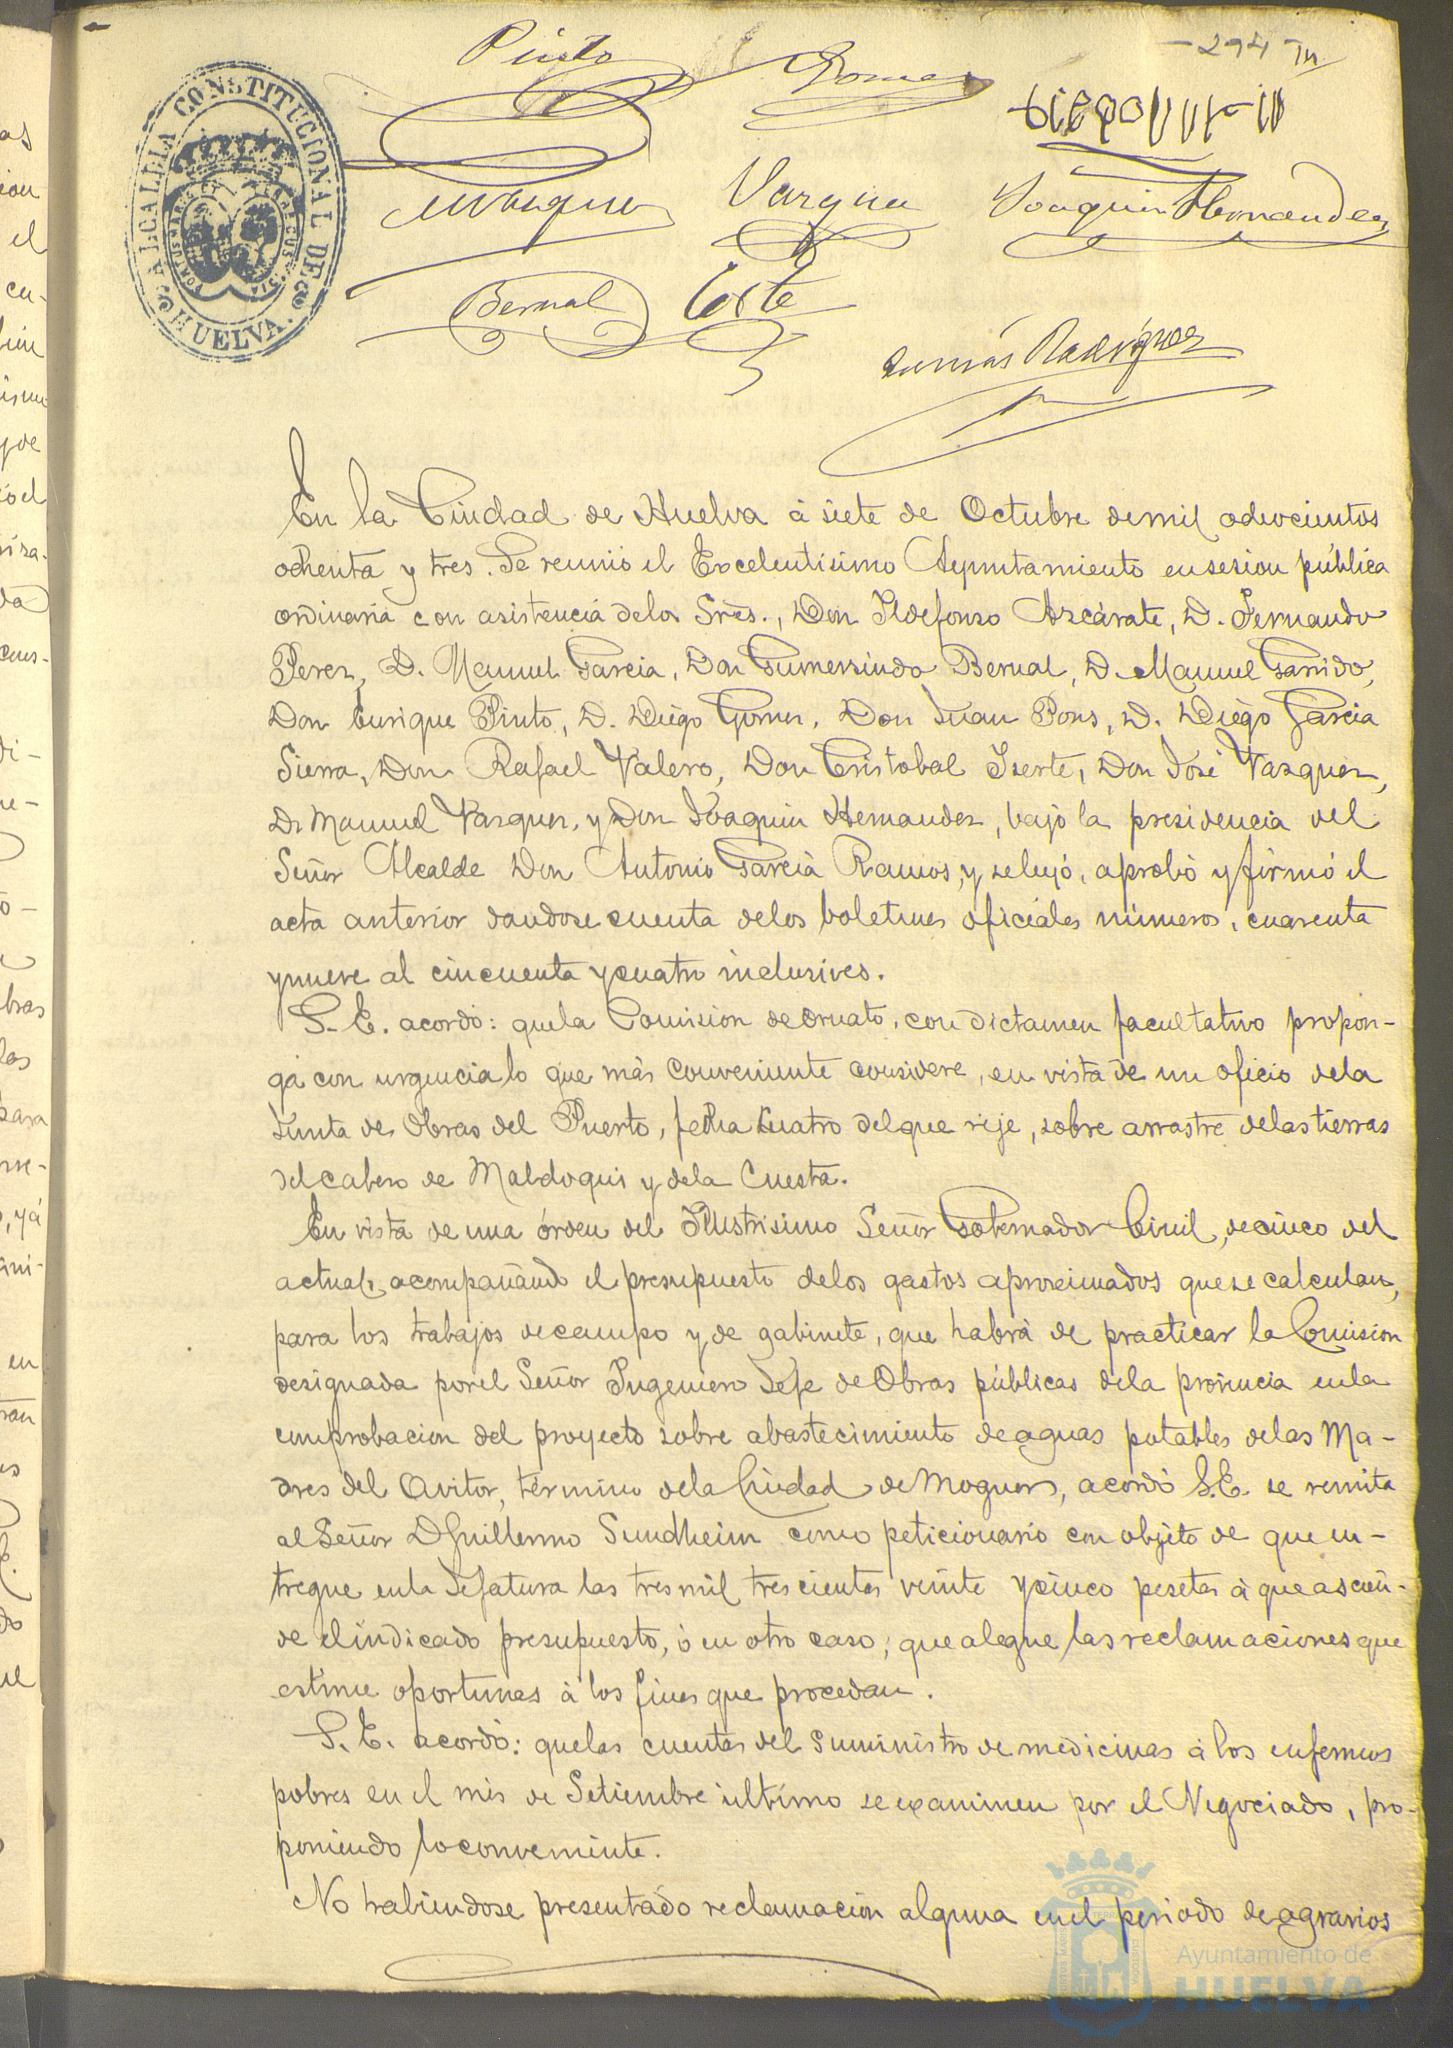 294
Pinto
Gomez
ALCALDIA CONSTITUCIONAL DE HUELVA
Vazquez
Joaquin Hernandez
Bernal
Tomás Rodriguez
En la Ciudad de Huelva á siete de Octubre de mil ochocientos
ochenta y tres. Se reunió el Excelentísimo Ayuntamiento en sesion pública
ordinaria con asistencia de los Sres., Don Ildefonso Azcárate, D. Fernando
Perez, D. Manuel Garcia, Don Gumersindo Bernal, D. Manuel Garrido,
Don Enrique Pinto, D. Diego Gomez, Don Juan Pons, D. Diego Garcia
Sierra, Don Rafael Valero, Don Cristobal Iserte, Don José Vazquez,
D. Manuel Vazquez, y Don Joaquin Hernandez, bajo la presidencia del
Señor Alcalde Don Antonio Garcia Ramos, y se leyó, aprobó y firmó el
acta anterior dandose cuenta de los boletines oficiales números, cuarenta
y nueve al cincuenta y cuatro inclusives.
S. E. acordó: que la Comision de Ornato, con dictamen facultativo propon-
ga con urgencia lo que más conveniente considere, en vista de un oficio de la
Junta de Obras del Puerto, fecha cuatro del que rije, sobre arrastre de las tierras
del cabezo de Maldoqui y de la Cuesta.
En vista de una órden del Ilustrísimo Señor Gobernador Civil, de cinco del
actual, acompañando el presupuesto de los gastos aproximados que se calculan,
para los trabajos de campo y de gabinete, que habrá de practicar la Comision
designada por el Señor Ingeniero Jefe de Obras públicas de la provincia en la
comprobacion del proyecto sobre abastecimiento de aguas potables de las Ma-
dres del Avitor, término de la Ciudad de Moguer, acordó S.E. se remita
al Señor D. Guillermo Sundheim como peticionario con objeto de que en-
tregue en la Jefatura las tres mil trescientas veinte y cinco pesetas á que ascien-
de el indicado presupuesto, ó en otro caso, que alegue las reclamaciones que
estime oportunas á los fines que procedan.
S. E. acordó: que las cuentas del suministro de medicinas á los enfermos
pobres en el mes de Setiembre último se examinen por el Negociado, pro-
poniendo lo conveniente.
No habiendose presentado reclamación alguna en el periodo de agravios
Ayuntamiento de
HUELVA